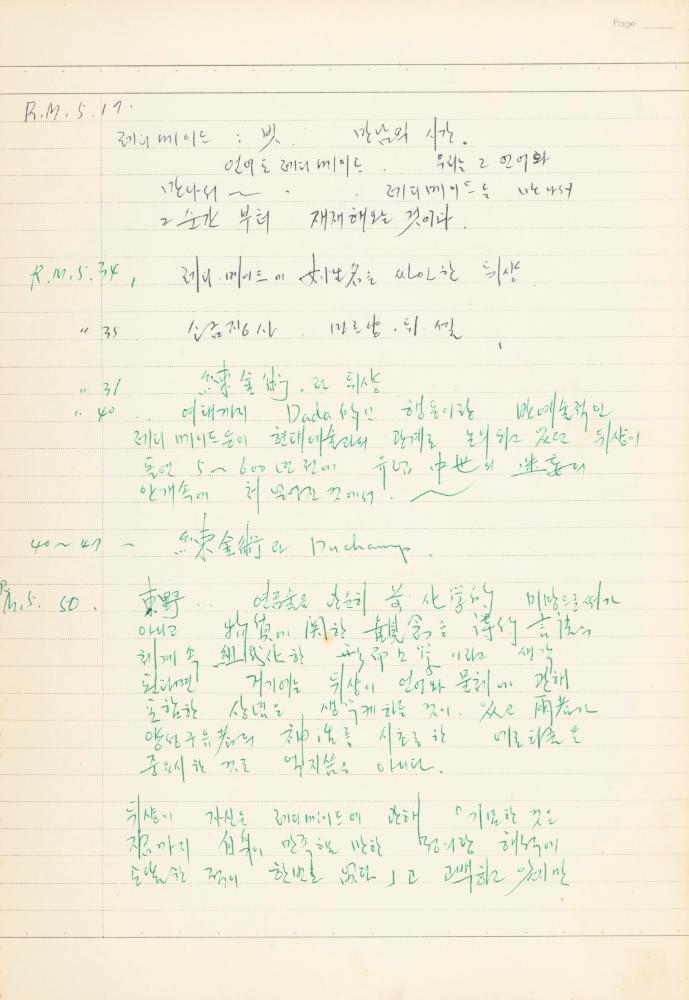 Page
R.M.5.17.
레디메이드 : 빗. 만남의 시간.
언어도 레디메이드. 우리는 그 언어와
만나서 ~ . 레디메이드는 만나서
그 순간 부터 재재해오는 것이다.
R.M.5.34, 레디메이드에 을 싸인한 뒤샹
〃 35 마르샹.뒤.셀
〃 31 練金術.과 뒤샹
〃 40 .. 여태까지 Dada的인 행동이랑 반예술적인
레디메이드등이 현대예술과의 관계로 논의되고 있던 뒤샹이
돌연 5~600년전에 유럽 中世의 迷妄의
안개속에 것에서. ~
40~47 ~ 練金術과 Duchamp.
R.M.5. 50. 東野 ... 연금술을 단순히 化学的 미망으로써가
아니고 物質에 関한 観念을 詩的 言語의
체계 속 組成化한 形而上学 이라고 생각
된다면 거기에는 뒤샹이 언어와 물체에 관해
포함한 상념을 생각케하는 것이. 있고 両者가
양성구유者의 神話를 시초로한 에로티즘을
중요시한 것도 억지씀은 아니다.
뒤샹이 자신은 레디메이드에 관해 「기묘한 것은
지금까지 自身이 만족할 만한 정의랑 해석에
도달한 적이 한번도 없다」고 고백하고 있지만